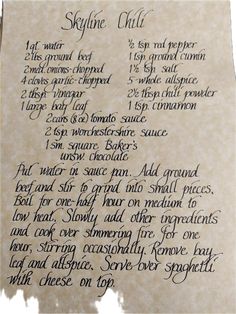 Skyline Chili
1 qt. water
2 lbs ground beef
2 med. onions-chopped
4 cloves garlic-chopped
2 tbsp. vinegar
1 large bay leaf
½ tsp. red pepper
1 tsp. ground cumin
1½ tsp. salt
5 whole allspice
2½ tbsp chili powder
1 tsp. cinnamon
2 cans (8oz) tomato sauce
2 tsp. worchestershire sauce
1 sm. square Baker's
unsw. chocolate
Put water in sauce pan. Add ground
beef and stir to grind into small pieces.
Boil for one-half hour on medium to
low heat. Slowly add other ingredients
and cook over simmering fire for one
hour, stirring occasionally. Remove bay
leaf and allspice. Serve over spaghetti
with cheese on top.